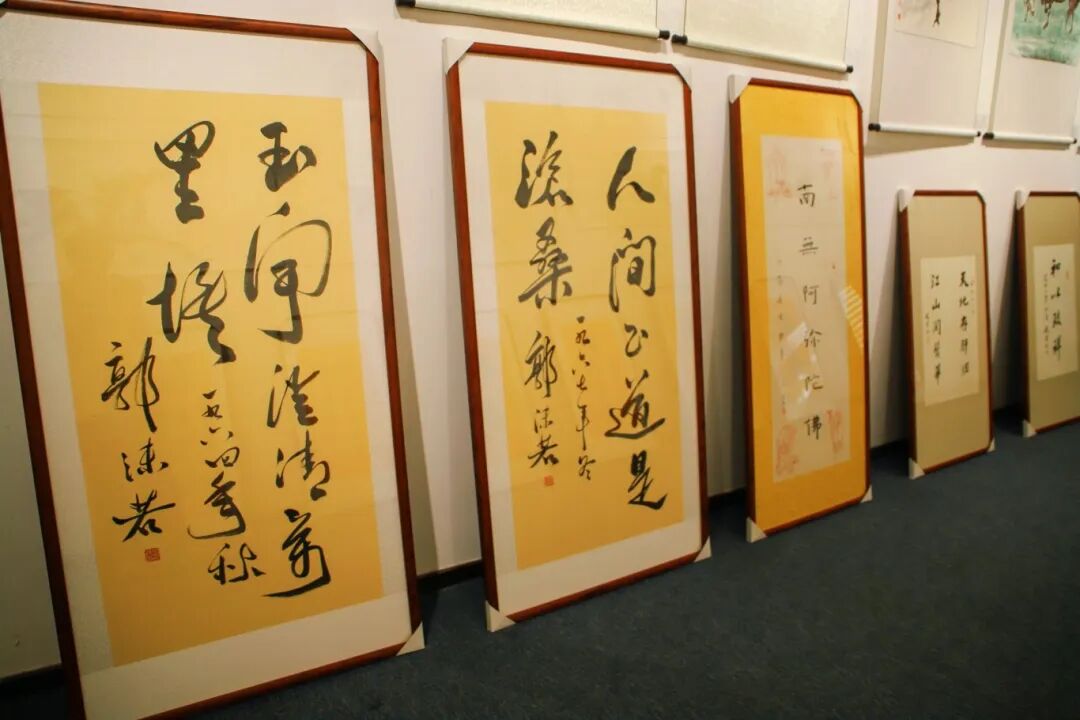 玉宇澄清萬
里埃
一九六四年秋
郭沫若
人間正道是
滄桑
一九六七年冬
郭沫若
南無阿弥陀佛
天地存肝胆
江山閱鬢華
和以致祥